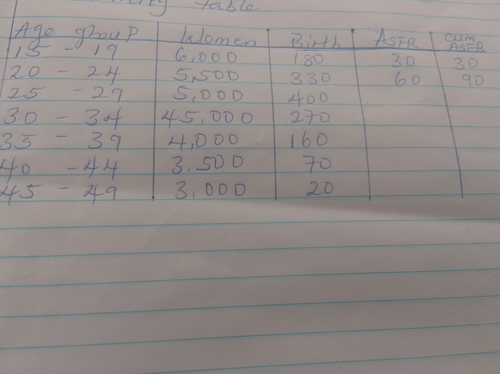 table
Age group Women Birth ASFR cum ASFR
15 - 19 6,000 180 30 30
20 - 24 5,500 330 60 90
25 - 29 5,000 400
30 - 34 45,000 270
35 - 39 4,000 160
40 - 44 3.500 70
45 - 49 3,000 20